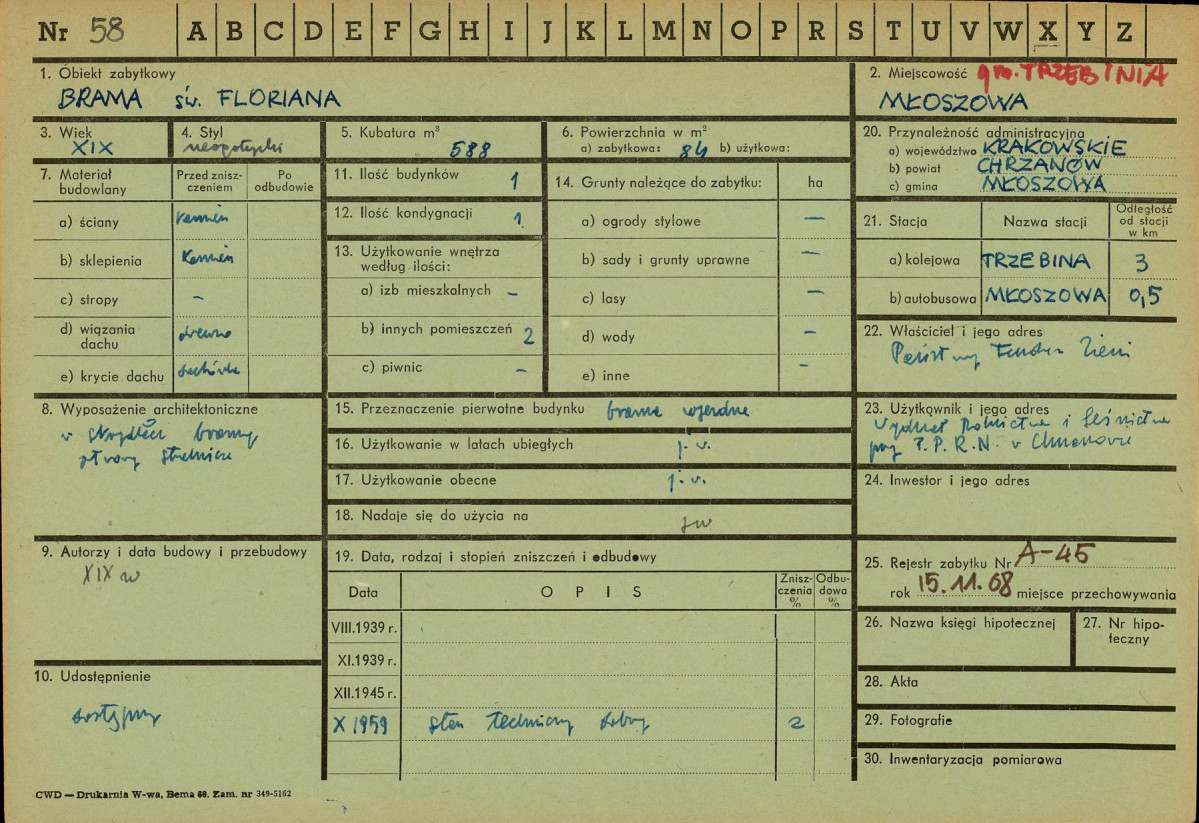 Nr 58 A B C D E F G H I J K L M N O P R S T U V W X Y Z
1. Obiekt zabytkowy
BRAMA św. FLORIANA
2. Miejscowość gm. TRZEBINIA
MŁOSZOWA
3. Wiek
XIX
4. Styl
neogotycki
5. Kubatura m³
588
6. Powierzchnia w m²
a) zabytkowa: 84 b) użytkowa:
20. Przynależność administracyjna
a) województwo KRAKOWSKIE
b) powiat CHRZANÓW
c) gmina MŁOSZOWA
7. Materiał budowlany
Przed zniszczeniem
Po odbudowie
a) ściany kamień
b) sklepienia kamień
c) stropy –
d) wiązania dachu drewno
e) krycie dachu dachówka
11. Ilość budynków 1
12. Ilość kondygnacji 1
13. Użytkowanie wnętrza
według ilości:
a) izb mieszkalnych –
b) innych pomieszczeń 2
c) piwnic –
14. Grunty należące do zabytku: ha
a) ogrody stylowe –
b) sady i grunty uprawne –
c) lasy –
d) wody –
e) inne –
21. Stacja Nazwa stacji Odległość od stacji w km
a) kolejowa TRZEBINA 3
b) autobusowa MŁOSZOWA 0,5
22. Właściciel i jego adres
Państwowy Fundusz Ziemi
8. Wyposażenie architektoniczne
w skrzydłach bramy
otwory strzelnicze
15. Przeznaczenie pierwotne budynku brama wjezdna
16. Użytkowanie w latach ubiegłych j.w.
17. Użytkowanie obecne j.w.
18. Nadaje się do użycia na jw
23. Użytkownik i jego adres
Wydział Rolnictwa i Leśnictwa
przy P.P.R.N. w Chrzanowie
24. Inwestor i jego adres
9. Autorzy i data budowy i przebudowy
XIX w
19. Data, rodzaj i stopień zniszczeń i odbudowy
Data OPIS Zniszczenia % Odbudowa %
VIII.1939 r.
XI.1939 r.
XII.1945 r.
X 1959 stan techniczny dobry 2
25. Rejestr zabytku Nr A-45
rok 15.11.68 miejsce przechowywania
26. Nazwa księgi hipotecznej
27. Nr hipoteczny
10. Udostępnienie
dostępny
28. Akta
29. Fotografie
30. Inwentaryzacja pomiarowa
CWD — Drukarnia W-wa, Bema 60. Zam. nr 349-5162